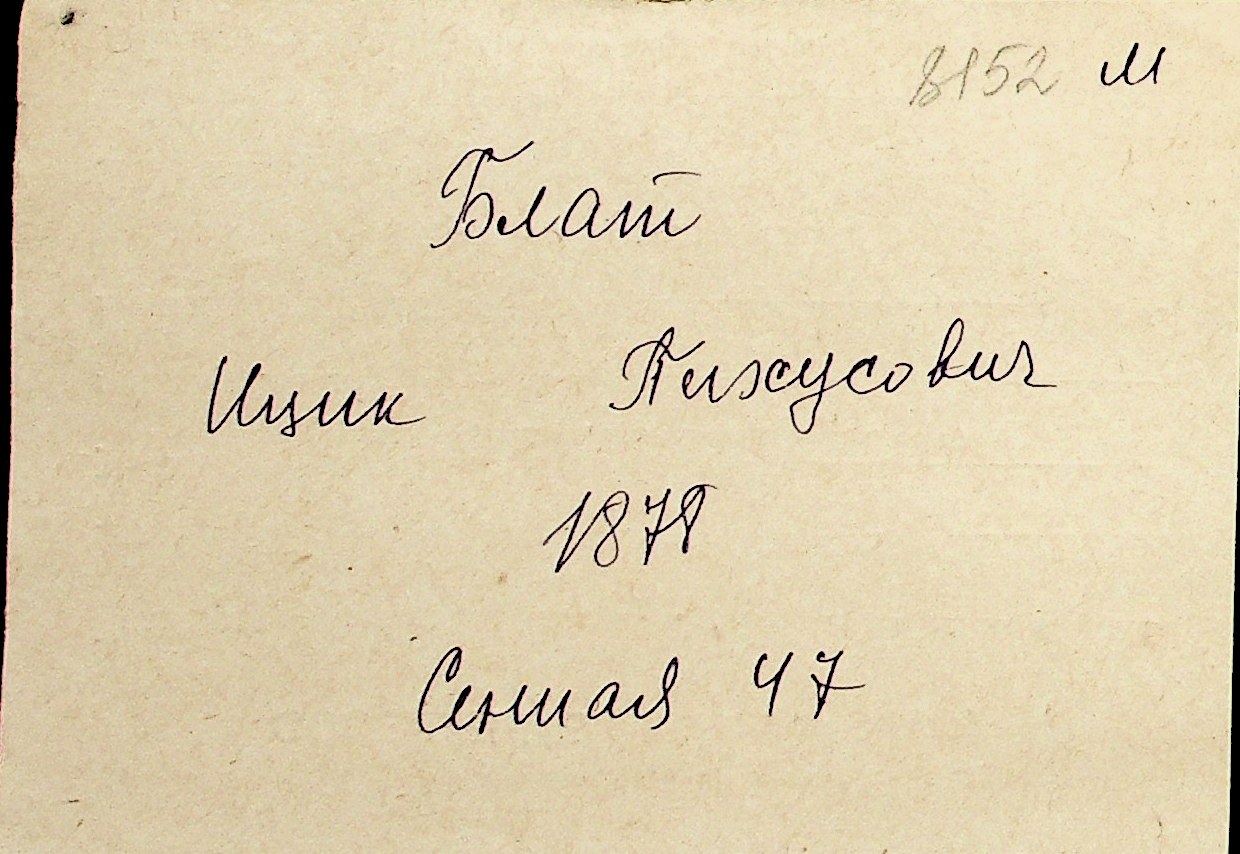 8152 М
Блат
Ицик Пихусович
1879
Сенная 47